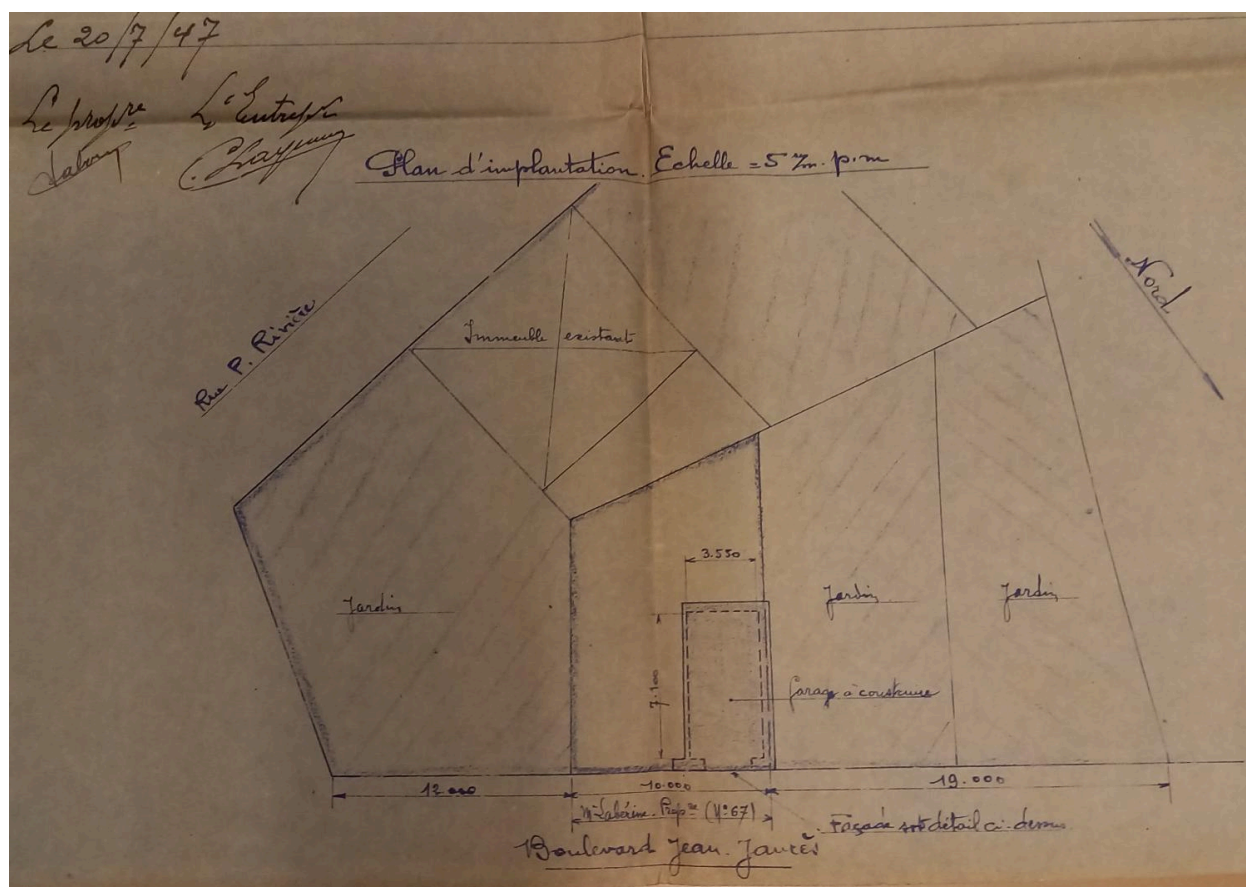 Le 20/7/47
Le propre L'Entrepr
Plan d'implantation. Echelle = 5 %m. p.m
Nord
Rue P. Rivière
Immeuble existant
3.550
Jardin
Jardin
Jardin
7.100
Garage à construire
12.000
10.000
19.000
Propre (N° 67)
Façade détail ci-dessus
Boulevard Jean-Jaurès